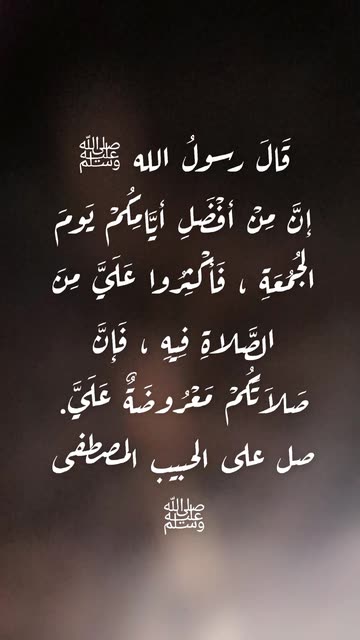 قَالَ رسولُ الله ﷺ
إنَّ مِنْ أفْضَلِ أيَّامِكُمْ يَومَ
الجُمُعَةِ ، فَأَكْثِرُوا عَلَيَّ مِنَ
الصَّلاةِ فِيهِ ، فَإنَّ
صَلاَتَكُمْ مَعْرُوضَةٌ عَلَيَّ.
صل على الحبيب المصطفى
ﷺ